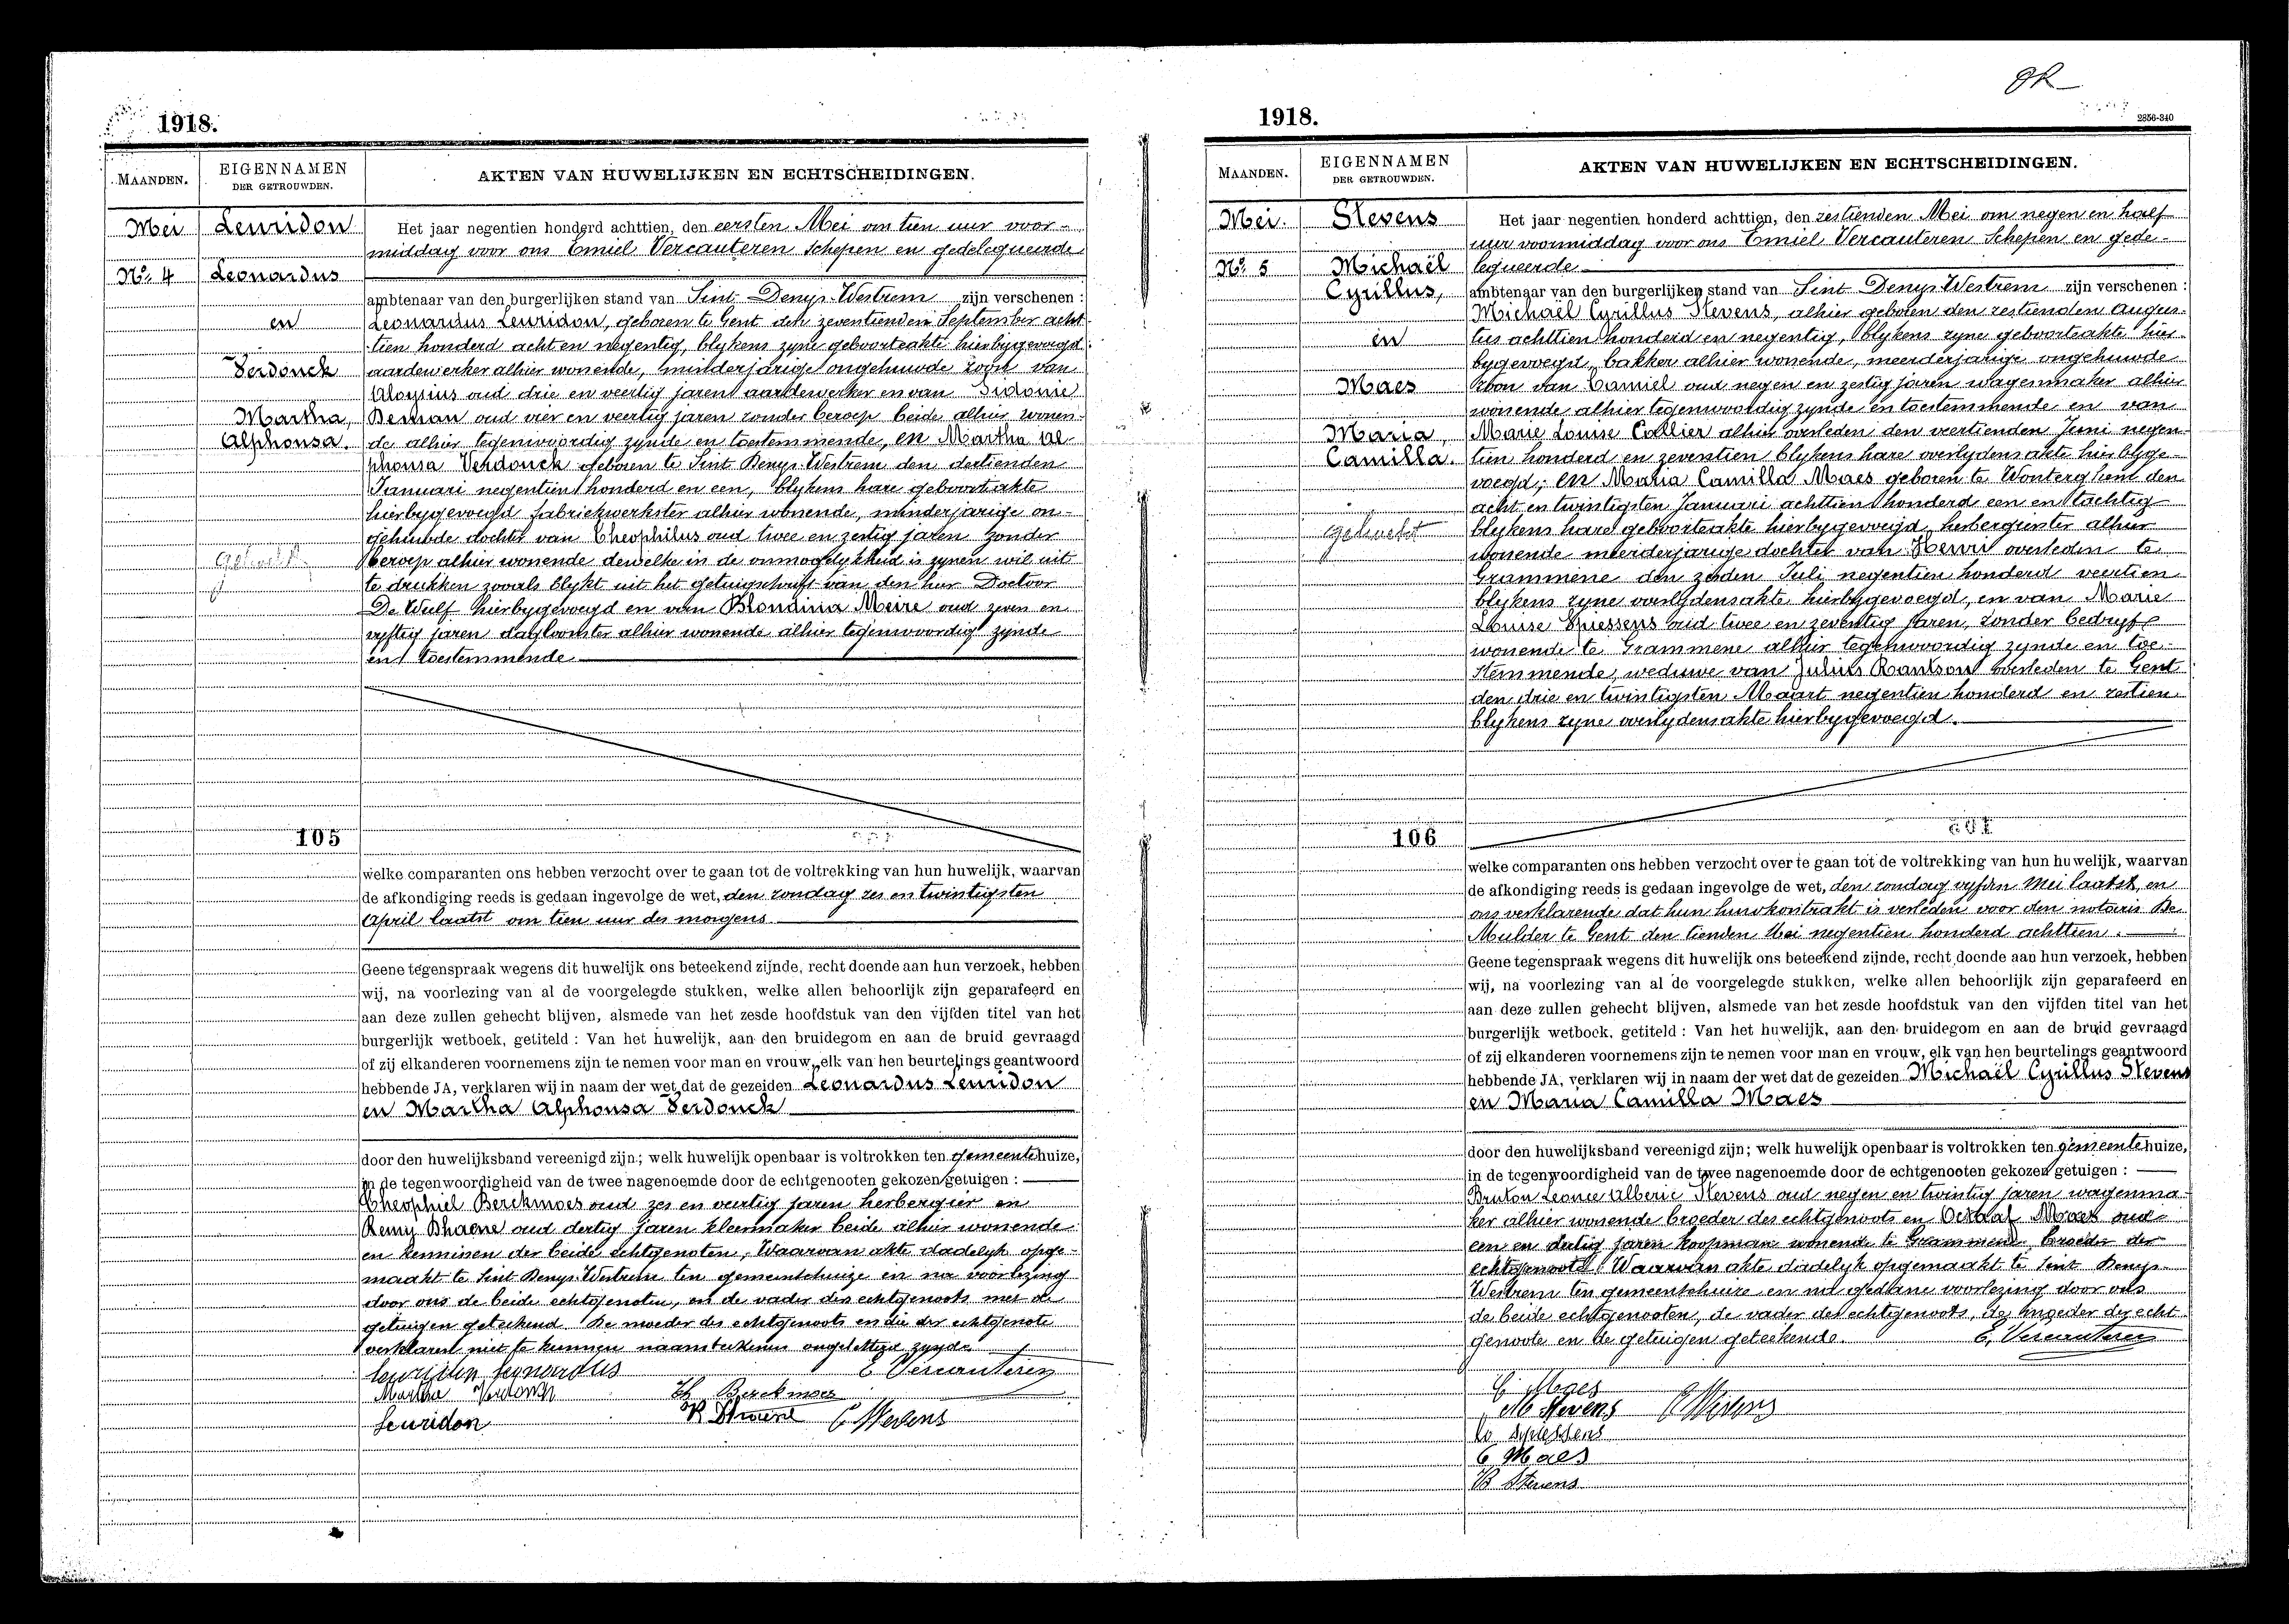 1918.
MAANDEN.
EIGENNAMEN
DER GETROUWDEN.
AKTEN VAN HUWELIJKEN EN ECHTSCHEIDINGEN.
Mei
Nº 4
Leuridon
Leonardus
en
Verdonck
Martha,
Alphonsa.
Het jaar negentien honderd achttien, den eersten Mei om tien uur voor-
middag voor ons Emiel Vercauteren Schepen en gedelegueerde
ambtenaar van den burgerlijken stand van Sint Denys Westrem zijn verschenen :
Leonardus Leuridon, geboren te Gent den zeventienden September acht-
tien honderd acht en negentig, blykens zyne geboorteakte hierbygevoegd
aardewerker alhier wonende, minderjarige ongehuwde zoon van
Aloysius oud drie en veertig jaren aardewerker en van Sidonie
Beman oud vier en veertig jaren zonder beroep beide alhier wonen-
de alhier tegenwoordig zynde en toestemmende, en Martha Al-
phonsa Verdonck geboren te Sint Denys Westrem den dertienden
Januari negentien honderd en een, blykens hare geboortakte
hierbygevoegd fabriekwerkster alhier wonende, minderjarige on-
gehuwde dochter van Theophilus oud twee en zestig jaren zonder
beroep alhier wonende dewelke in de onmogelykheid is zynen wil uit
te drukken zooals blykt uit het getuigschrift van den heer Doctoor
De Wulf hierbygevoegd en van Blondina Meire oud zeven en
vyftig jaren dagloonster alhier wonende alhier tegenwoordig zynde
en toestemmende
105
welke comparanten ons hebben verzocht over te gaan tot de voltrekking van hun huwelijk, waarvan
de afkondiging reeds is gedaan ingevolge de wet, den zondag zes en twintigsten
April laatst om tien uur des morgens
Geene tegenspraak wegens dit huwelijk ons beteekend zijnde, recht doende aan hun verzoek, hebben
wij, na voorlezing van al de voorgelegde stukken, welke allen behoorlijk zijn geparafeerd en
aan deze zullen gehecht blijven, alsmede van het zesde hoofdstuk van den vijfden titel van het
burgerlijk wetboek, getiteld : Van het huwelijk, aan den bruidegom en aan de bruid gevraagd
of zij elkanderen voornemens zijn te nemen voor man en vrouw, elk van hen beurtelings geantwoord
hebbende JA, verklaren wij in naam der wet dat de gezeiden Leonardus Leuridon
en Martha Alphonsa Verdonck
door den huwelijksband vereenigd zijn ; welk huwelijk openbaar is voltrokken ten gemeentehuize,
in de tegenwoordigheid van de twee nagenoemde door de echtgenooten gekozen getuigen :
Theophiel Berckmoes oud zes en veertig jaren herbergier en
Remy Dhaene oud dertig jaren kleermaker beide alhier wonende
en kennissen der beide echtgenoten, Waarvan akte dadelyk opge-
maakt te Sint Denys Westrem ten gemeentehuize en na voorlezing
door ons de beide echtgenoten, en de vader des echtgenoots met de
getuigen geteekend. De moeder des echtgenoots en die der echtgenote
verklaren niet te kunnen naamteekenen ongeletterd zynde
Leuridon Leonardus E. Vercauteren
Martha Verdonck Th Berckmoes
Leuridon R Dhaene C Stevens
1918.
2856-340
MAANDEN.
EIGENNAMEN
DER GETROUWDEN.
AKTEN VAN HUWELIJKEN EN ECHTSCHEIDINGEN.
Mei.
Nº 5
Stevens
Michaël
Cyrillus,
en
Maes
Maria,
Camilla.
Het jaar negentien honderd achttien, den zestienden Mei om negen en half
uur voormiddag voor ons Emiel Vercauteren Schepen en gede-
legueerde
ambtenaar van den burgerlijken stand van Sint Denys Westrem zijn verschenen :
Michaël Cyrillus Stevens, alhier geboren den zestienden Augus-
tus achttien honderd en negentig, blykens zyne geboorteakte hier-
bygevoegd, bakker alhier wonende, meerderjarige ongehuwde
zoon van Camiel oud negen en zestig jaren wagenmaker alhier
wonende alhier tegenwoordig zynde en toestemmende en van
Marie Louise Collier alhier overleden den veertienden Juni negen-
tien honderd en zeventien blykens hare overlydensakte hierbyge-
voegd; en Maria Camilla Maes geboren te Wonterghem den
acht en twintigsten Januari achttien honderd een en tachtig
blykens hare geboorteakte hierbygevoegd, herbergierster alhier
wonende meerderjarige dochter van Henri overleden te
Grammene den zesden Juli negentien honderd veertien
blykens zyne overlydensakte hierbygevoegd, en van Marie
Louise Spiessens oud twee en zeventig jaren, zonder bedryf
wonende te Grammene alhier tegenwoordig zynde en toe-
stemmende, weduwe van Julius overleden te Gent
den drie en twintigsten Maart negentien honderd en zestien
blykens zyne overlydensakte hierbygevoegd.
106
welke comparanten ons hebben verzocht over te gaan tot de voltrekking van hun huwelijk, waarvan
de afkondiging reeds is gedaan ingevolge de wet, den zondag vyfden Mei laatst, en
ons verklarende dat hun huwkontrakt is verleden voor den notaris De
Mulder te Gent den tienden Mei negentien honderd achttien.
Geene tegenspraak wegens dit huwelijk ons beteekend zijnde, recht doende aan hun verzoek, hebben
wij, na voorlezing van al de voorgelegde stukken, welke allen behoorlijk zijn geparafeerd en
aan deze zullen gehecht blijven, alsmede van het zesde hoofdstuk van den vijfden titel van het
burgerlijk wetboek, getiteld : Van het huwelijk, aan den bruidegom en aan de bruid gevraagd
of zij elkanderen voornemens zijn te nemen voor man en vrouw, elk van hen beurtelings geantwoord
hebbende JA, verklaren wij in naam der wet dat de gezeiden Michaël Cyrillus Stevens
en Maria Camilla Maes
door den huwelijksband vereenigd zijn ; welk huwelijk openbaar is voltrokken ten gemeentehuize,
in de tegenwoordigheid van de twee nagenoemde door de echtgenooten gekozen getuigen :
Leonce Alberic Stevens oud negen en twintig jaren wagenma-
ker alhier wonende broeder des echtgenoots en Maes oud
een en dertig jaren koopman wonende te Grammene broeder der
echtgenoote Waarvan akte dadelyk opgemaakt te Sint Denys
Westrem ten gemeentehuize en na gedane voorlezing door ons
de beide echtgenooten, de vader des echtgenoots, de moeder der echt-
genoote en de getuigen geteekende. E. Vercauteren
C Maes
M Stevens C Stevens
Spiessens
Maes
B Stevens